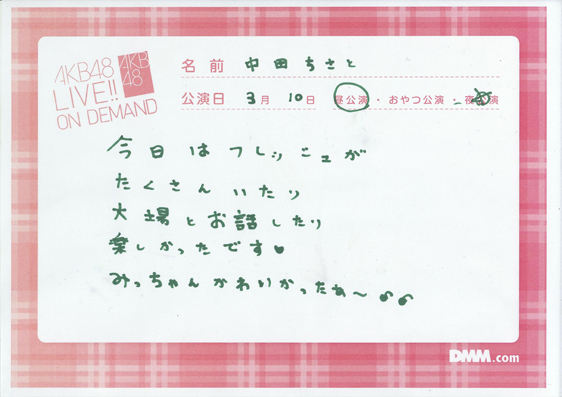 AKB48
LIVE!!
ON DEMAND
AKB
48
名前 中田ちさと
公演日 3月 10日 昼公演・おやつ公演・夜公演
今日はフレッシュが
たくさんいたり
大場とお話したり
楽しかったです♥
みっちゃんかわいかったぁ〜
DMM.com